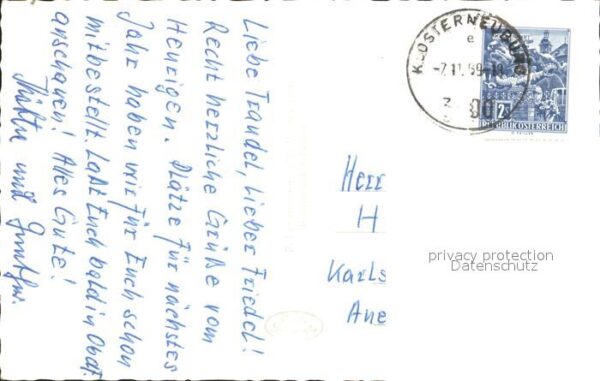 Liebe Traudel, lieber Friedel!
Recht herzliche Grüße vom
Heurigen. Plätze für nächstes
Jahr haben wir für Euch schon
mitbestellt. Laßt Euch bald in Obdf.
anschauen! Alles Gute!
und
KLOSTERNEUBURG
e
-7.11.69-
2S
REPUBLIK ÖSTERREICH
Herr
H
Karls
Ane
privacy protection
Datenschutz